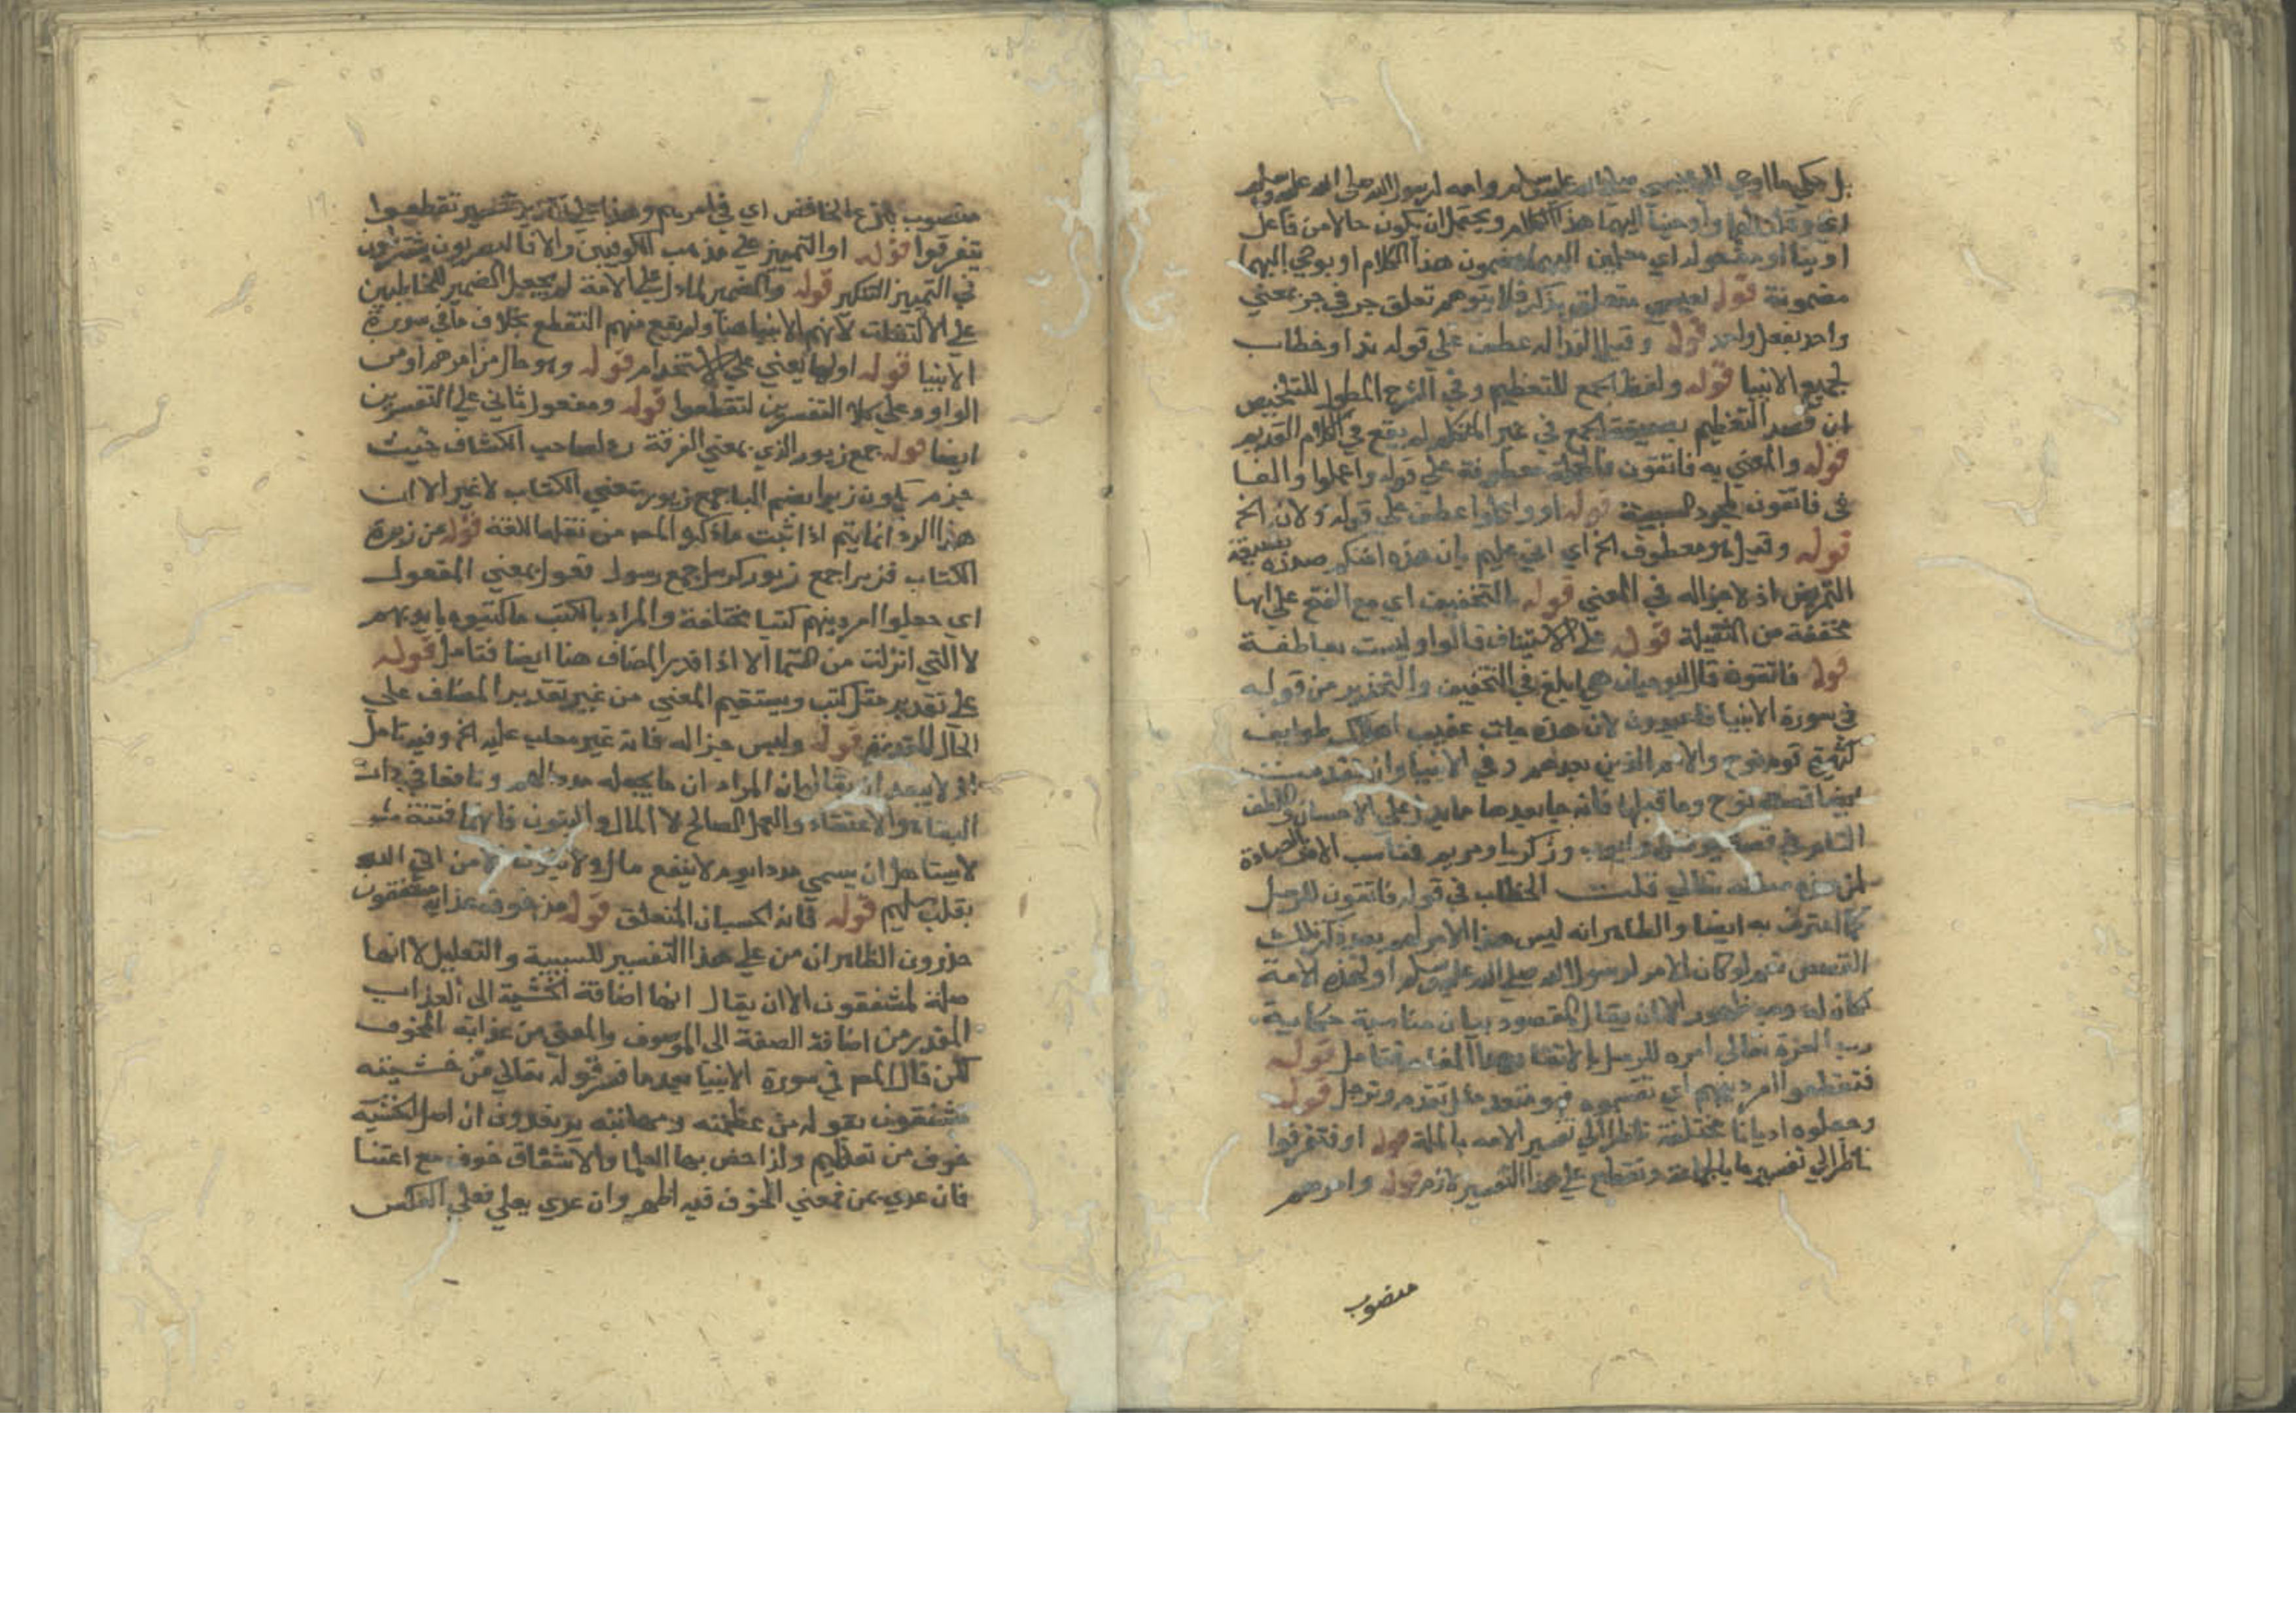 بل حكي ما اوحي الي عيسي عليه السلام وامه لرسول الله صلي الله عليه وسلم
اي وقلنا لهما واوحينا اليهما هذا الكلام ويحتمل ان يكون حالا من فاعل
اوينا او مفعوله اي معلمين اليهما مضمون هذا الكلام او يوحي اليهما
مضمونة قوله لعيسي متعلق بذكر فلا يتوهم تعلق جر في جر بمعني
واحد بفعل واحد قوله وقيل الندا له عطف علي قوله ندا وخطاب
لجميع الانبيا قوله ولفظ الجمع للتعظيم وفي الشرح المطول للتلخيص
ان قصد التعظيم بصيغة الجمع في غير المتكلم لم يقع في الكلام القديم
قوله والمعني به فاتقون فالجملة معطوفة علي قوله واعملوا والفا
في فاتقون لمجرد السببية قوله او واعلموا عطف علي قوله ولان الخ
قوله وقيل هو معطوف الخ اي اني عليم بان هذه امتكم صدره بصيغة
التمريض اذ لا جزاله في المعني قوله بالتخفيف اي مع الفتح علي انها
مخففة من الثقيلة قوله علي الاستيناف فالواو ليست بعاطفة
قوله فاتقون قال ابو حيان هي ابلغ في التخفيف والتحذير من قوله
في سورة الانبيا فاعبدون لان هذه جات عقيب اهلاك طوايف
كثيرة قوم نوح والامم الذين بعدهم وفي الانبيا وان تقدمت
ايضا قصة نوح وما قبلها فانه جا بعدها ما يدل علي الاحسان واللطف
التام في قصة يونس وايوب وزكريا ومريم فناسب الامر بالعبادة
لمن هذه صفته تعالي قلت الخطاب في قوله فاتقون للرسل
كما اعترف به ايضا والظاهر انه ليس هذا الامر لهم بعد ذكر تلك
القصص نعم لو كان الامر لرسول الله صلي الله عليه وسلم او لهذه الامة
لكان له وجه ظهور الا ان يقال المقصود بيان مناسبة حكاية
رب العزة تعالي امره للرسل بالاتقا بهذا المقام فتامل قوله
فتقطعوا امر دينهم اي تقسموه فهو متعد مثل تقدم وترجل قوله
وجعلوه اديانا مختلفة ناظر الي تفسير الامة بالملة قوله او فتفرقوا
ناظر الي تفسيرها بالجماعة وتقطع علي هذا التفسير لازم قوله وامرهم
منصوب
منصوب بنزع الخافض اي في امرهم وهذا علي تقدير تفسير تقطعوا
يتفرقوا قوله او التمييز علي مذهب الكوفيين والا فالبصريون يشترطون
في التمييز التنكير قوله والضمير لما دل عليه الامة لم يجعل الضمير للمخاطبين
علي الالتفات لانهم الانبيا هنا ولم يقع منهم التقطع بخلاف ما في سورة
الانبيا قوله او لها يعني علي الاستخدام قوله وهو حال من امرهم او من
الواو وعلي كلا التفسيرين لتقطعوا قوله ومفعول ثاني علي التفسيرين
ايضا قوله جمع زبور الذي بمعني الفرقة رد لصاحب الكشاف حيث
جزم بكون زبرا بضم البا جمع زبور بمعني الكتاب لا غير الا ان
هذا الرد انما يتم اذا ثبت ما ذكره المص من نقلها للغة قوله من زبرة
الكتاب فزبرا جمع زبور كرسل جمع رسول فعول بمعني المفعول
اي جعلوا امر دينهم كتبا مختلفة والمراد بالكتب ما كتبوه بايديهم
لا التي انزلت من السما الا اذا قدر المضاف هنا ايضا فتامل قوله
علي تقدير مثل كتب ويستقيم المعني من غير تقدير المضاف علي
الحال المقدرة قوله وليس خبرا له فانه غير معاب عليه الخ وفيه تامل
اذ لا يبعد ان يقال ان المراد ان ما يجعله مددا لهم ونافعا في ذات
البقاء والاعتقاد والعمل الصالح لا المال والبنون فانهما فتنة
لا يستاهل ان يسمي مددا يوم لا ينفع مال ولا بنون الا من اتي الله
بقلب سليم قوله فانه الحسبان المتعلق قوله من خوف عذابه مشفقون
حذرون الظاهر ان من علي هذا التفسير للسببية والتعليل لا انها
صلة لمشفقون الا ان يقال انها اضافة الخشية الي العذاب
المقدر من اضافة الصفة الي الموصوف والمعني من عذابه المخوف
لكن قال المص في سورة الانبيا بعد ما فسر قوله تعالي من خشيته
مشفقون بقوله من عظمته ومهابته يرتعدون ان اصل الخشية
خوف من تعظيم ولذا خص بها العلما والاشفاق خوف مع اعتنا
فان عدي بمن فمعني الخوف فيه اظهر وان عدي بعلي فعلي العكس